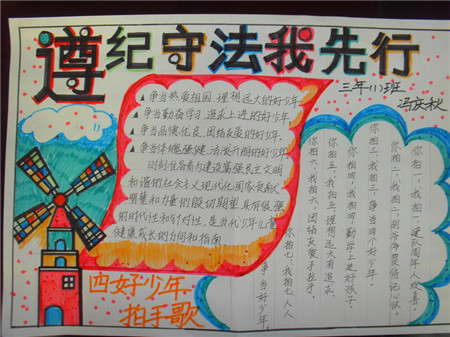 遵纪守法我先行
三年(1)班
冯庆秋
▲争当热爱祖国、理想远大的好少年
▲争当勤奋学习、追求上进的好少年
▲争当品德优良、团结友爱的好少年
▲争当体魄强健、活泼开朗的好少年
时刻准备着为建设富强民主文明
和谐的社会主义现代化国家贡献
智慧和力量的殷切期望具有很强
的时代性和针对性,是当代少年儿童
健康成长的方向和指南
四好少年
拍手歌
你拍一,我拍一,建队周年人欢喜。
你拍二,我拍二,
你拍三,我拍三,争当四个好少年。
你拍四,我拍四,勤学上进好孩子。
你拍五,我拍五,理想远大有追求。
你拍六,我拍六,团结友爱手拉手。
你拍七,我拍七,人人
争当好少年。